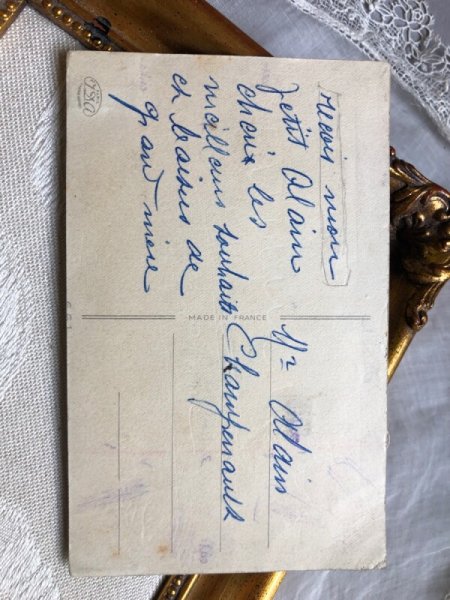 recois mon
petit Alain
chéri les
meilleurs souhaits
et baisers de
grand mère
MADE IN FRANCE
Mr Alain